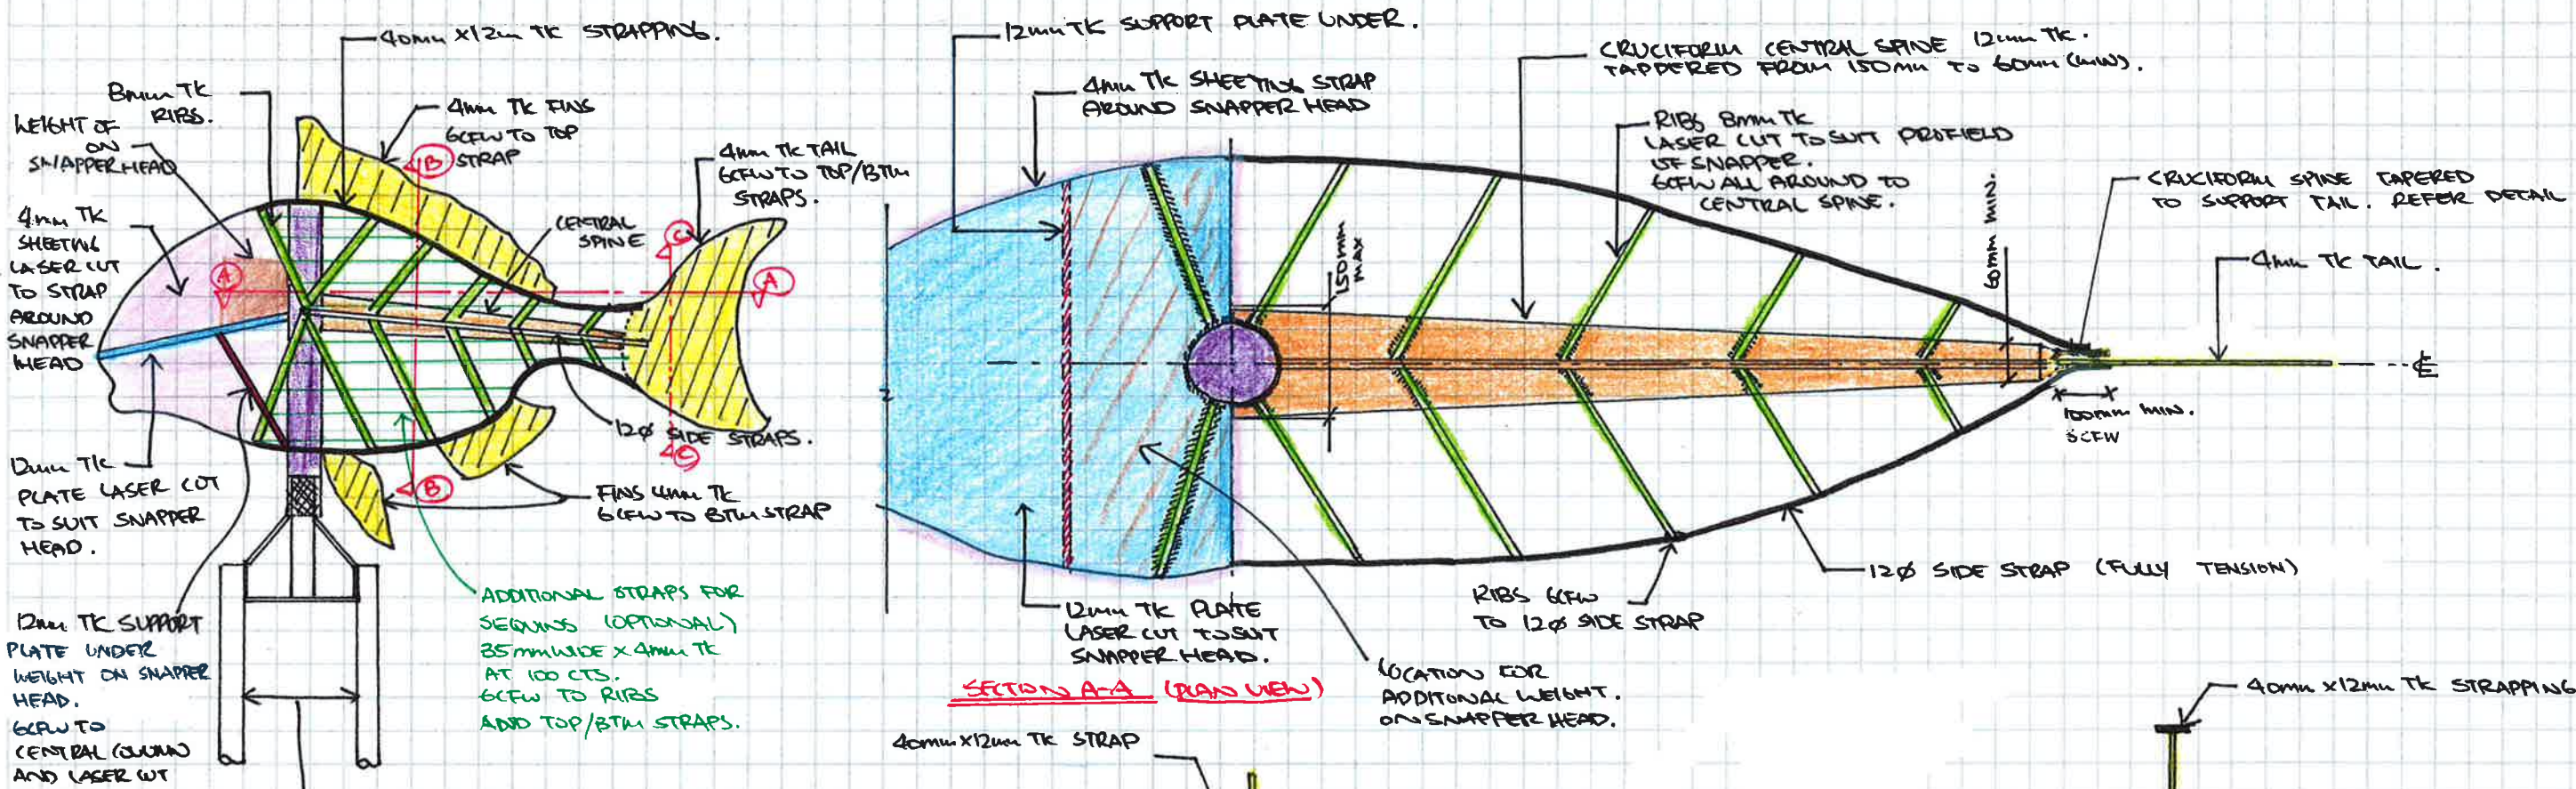 40mm x12m TK STRAPPING.
8mm TK
RIBS.
WEIGHT OF
ON
SNAPPER HEAD
4mm TK FINS
6CFW TO TOP
STRAP
B
4mm TK TAIL
6CFW TO TOP/BTM
STRAPS.
4mm TK
SHEETING
LASER CUT
TO STRAP
AROUND
SNAPPER
HEAD
CENTRAL
SPINE
C
A
A
12mm TK
PLATE LASER CUT
TO SUIT SNAPPER
HEAD.
12Ø SIDE STRAPS.
C
B
FINS 4mm TK
6CFW TO BTM STRAP
12mm TK SUPPORT
PLATE UNDER
WEIGHT ON SNAPPER
HEAD.
6CFW TO
CENTRAL COLUMN
AND LASER CUT
ADDITIONAL STRAPS FOR
SEQUINS (OPTIONAL)
35mm WIDE x 4mm TK
AT 100 CTS.
6CFW TO RIBS
AND TOP/BTM STRAPS.
12mm TK SUPPORT PLATE UNDER.
4mm TK SHEETING STRAP
AROUND SNAPPER HEAD
CRUCIFORM CENTRAL SPINE 12mm TK.
TAPPERED FROM 150mm TO 60mm (MIN).
RIBS 8mm TK
LASER CUT TO SUIT PROFIELD
OF SNAPPER.
6CFW ALL AROUND TO
CENTRAL SPINE.
CRUCIFORM SPINE TAPERED
TO SUPPORT TAIL. REFER DETAIL
150mm
MAX
60mm MIN.
4mm TK TAIL.
CL
100mm MIN.
5CFW
12Ø SIDE STRAP (FULLY TENSION)
RIBS 6CFW
TO 12Ø SIDE STRAP
12mm TK PLATE
LASER CUT TO SUIT
SNAPPER HEAD.
LOCATION FOR
ADDITIONAL WEIGHT.
ON SNAPPER HEAD.
SECTION A-A (PLAN VIEW)
40mm x12mm TK STRAP
40mm x12mm TK STRAPPING